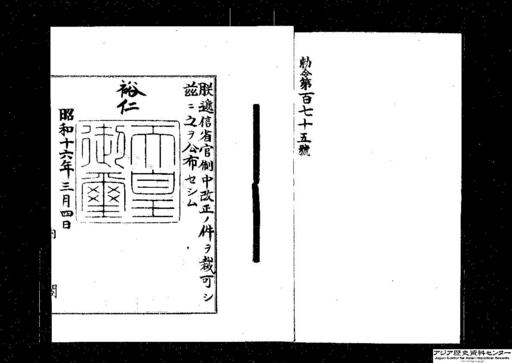 勅令第百七十五號
朕遞信省官制中改正ノ件ヲ裁可シ
茲ニ之ヲ公布セシム
裕仁
天皇
御璽
昭和十六年三月四日
内閣
アジア歴史資料センター
Japan Center for Asian Historical Records